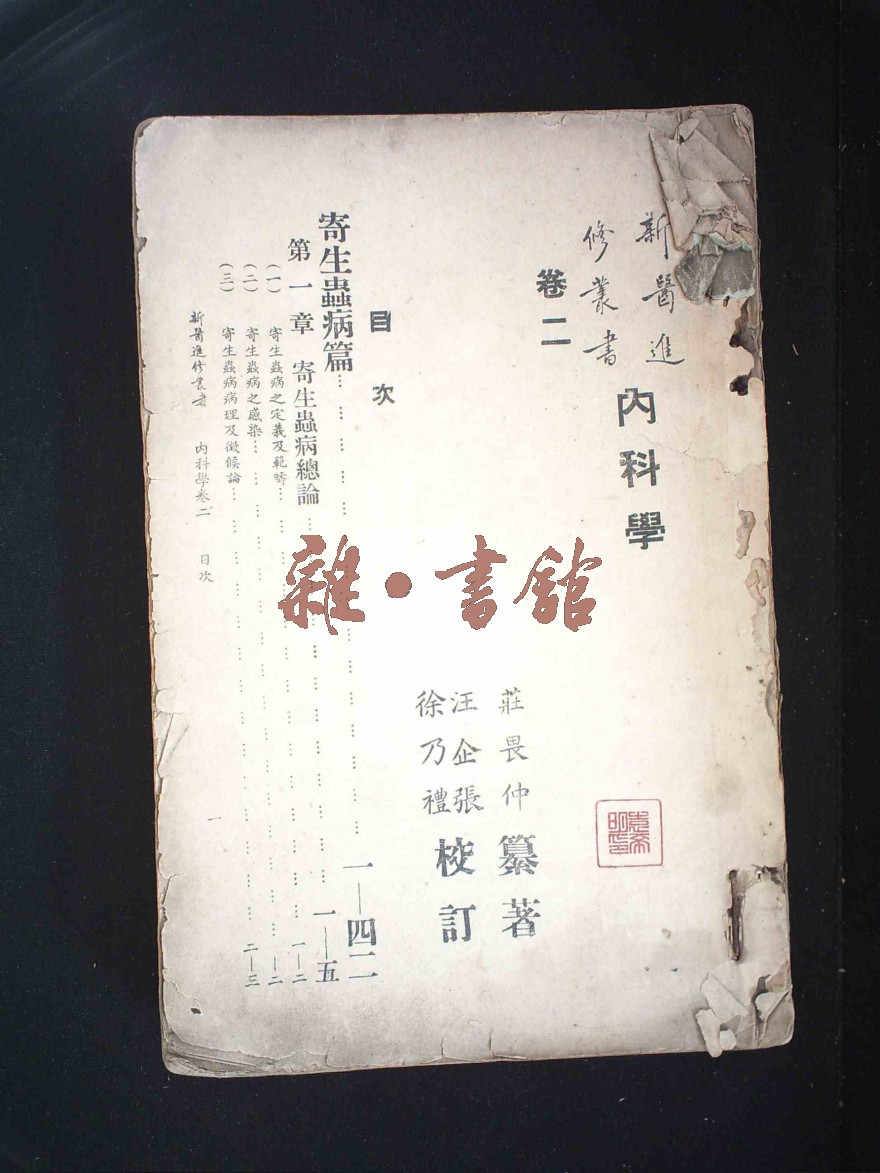 新醫進
修叢書
內科學
卷二
莊畏仲 纂著
汪企張
徐乃禮
校訂
目次
寄生蟲病篇………一—四二
第一章 寄生蟲病總論………一—五
(一) 寄生蟲病之定義及範疇………一—二
(二) 寄生蟲病之感染………一—二
(三) 寄生蟲病病理及徵候論………二—三
新醫進修叢書 內科學卷二 目次 一
雜·書館